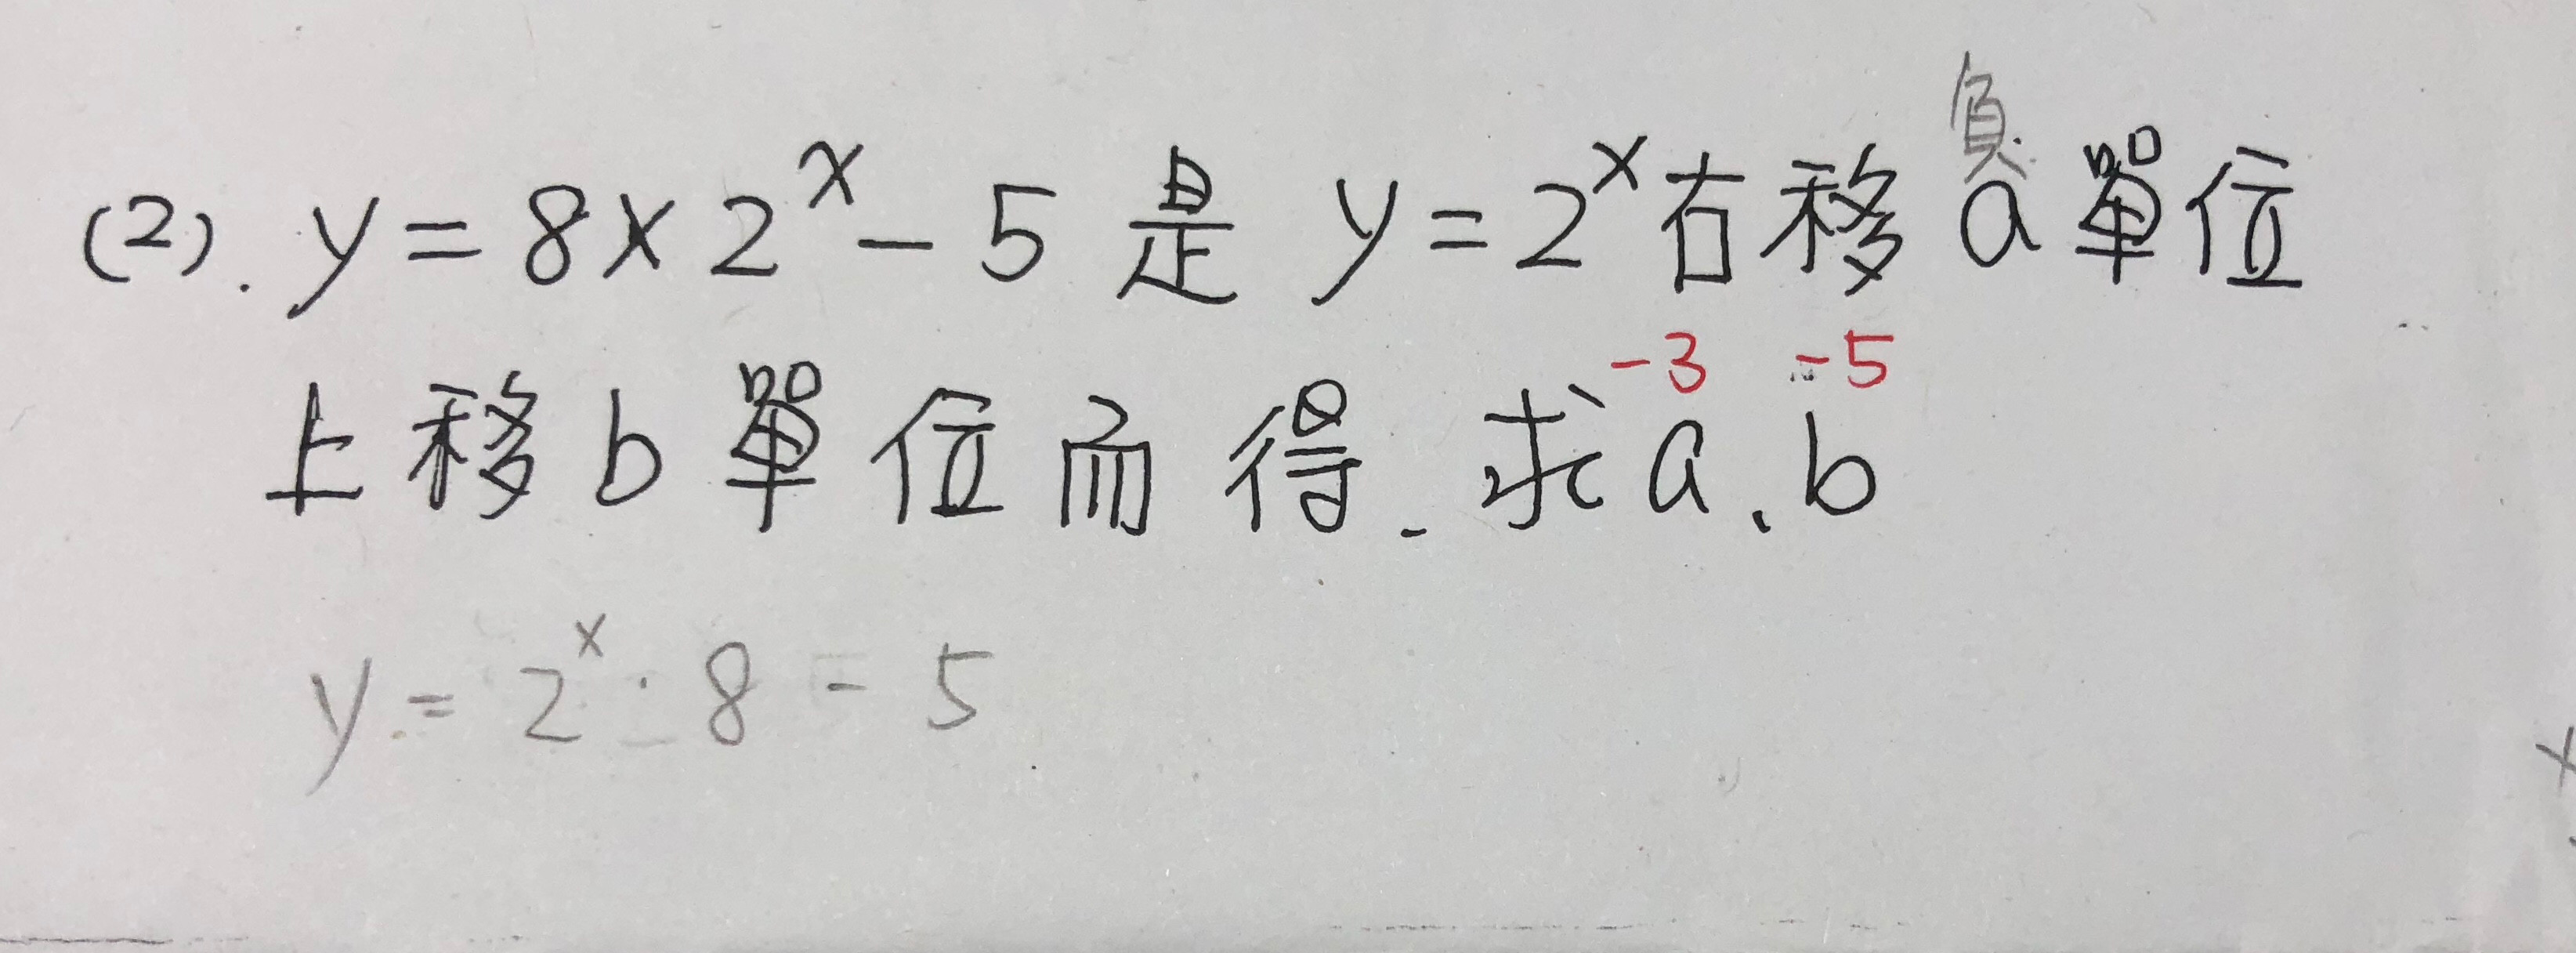 負
(2). y = 8 × 2^x - 5 是 y = 2^x 右移 a 單位
-3 -5
上移 b 單位而得. 求 a、b
y = 2^x · 8 - 5